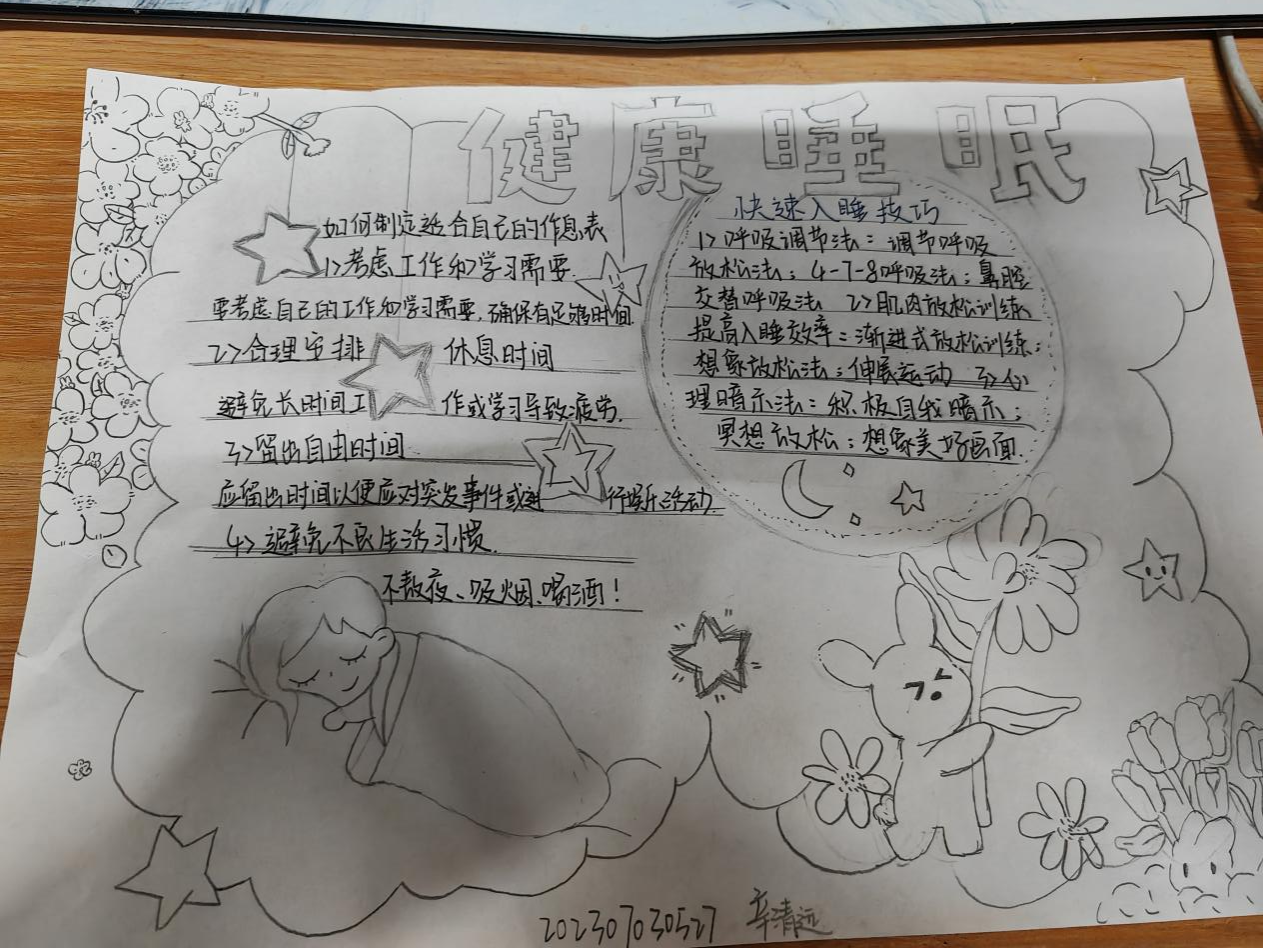 健康睡眠
如何制定适合自己的作息表
1>考虑工作和学习需要.
要考虑自己的工作和学习需要,确保有足够时间.
2>合理安排休息时间
避免长时间工作或学习导致疲劳.
3>留出自由时间
应留出时间以便应对突发事件或进行娱乐活动.
4>避免不良生活习惯.
不熬夜、吸烟、喝酒!
快速入睡技巧
1>呼吸调节法:调节呼吸
放松法;4-7-8呼吸法;鼻腔
交替呼吸法 2>肌肉放松训练
提高入睡效率:渐进式放松训练;
想象放松法;伸展运动 3>心
理暗示法:积极自我暗示;
冥想放松;想象美好画面.
202307030527 辛清远